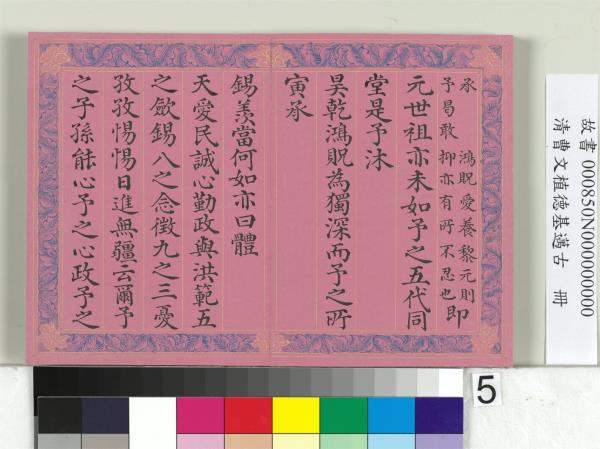 承 鴻貺愛養黎元則
予曷敢 抑亦有所不忍也
即
元世祖亦未如予之五代同
堂是予沐
昊乾鴻貺為獨深而予之所
寅承
錫羨當何如亦曰體
天愛民誠心勤政與洪範五
之斂錫八之念徵九之三憂
孜孜惕惕日進無疆云爾予
之子孫能心予之心政予之
故書 000850N000000000
清曹文植德基邁古 冊
5